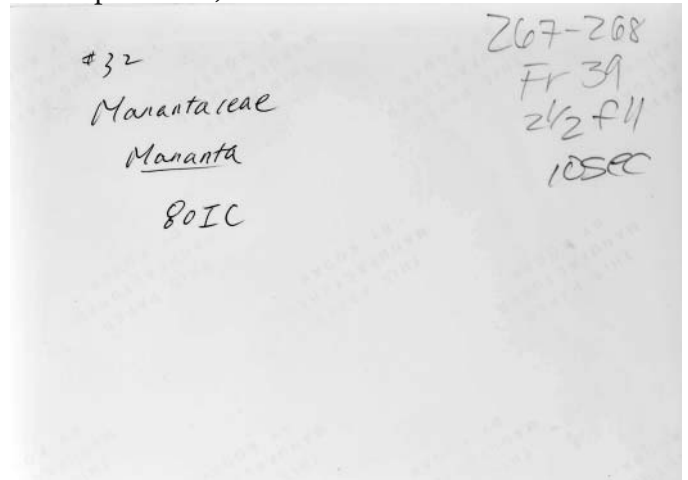 #32
Marantaceae
Maranta
80IC
267-268
Fr 39
2½ f11
10sec